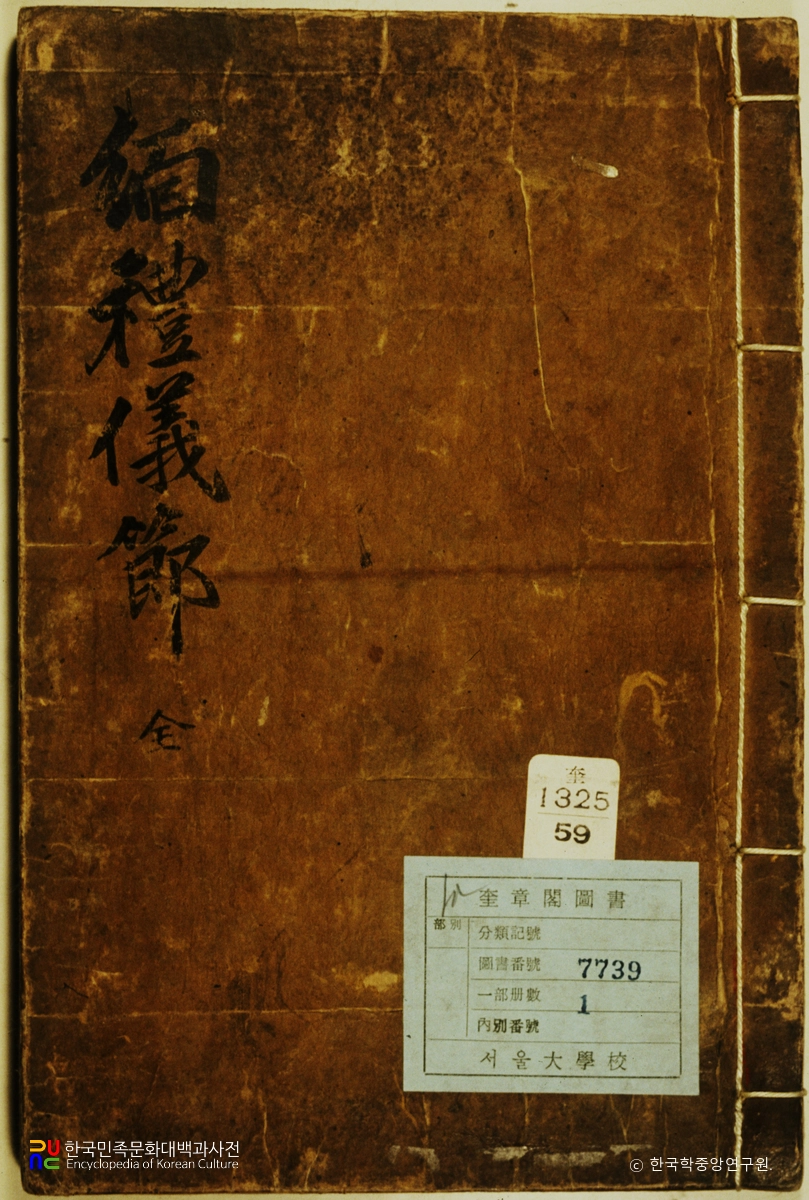 緬禮儀節
全
奎
1325
59
奎章閣圖書
部別
分類記號
圖書番號 7739
一部册數 1
內別番號
서울大學校
한국민족문화대백과사전
Encyclopedia of Korean Culture
ⓒ 한국학중앙연구원.